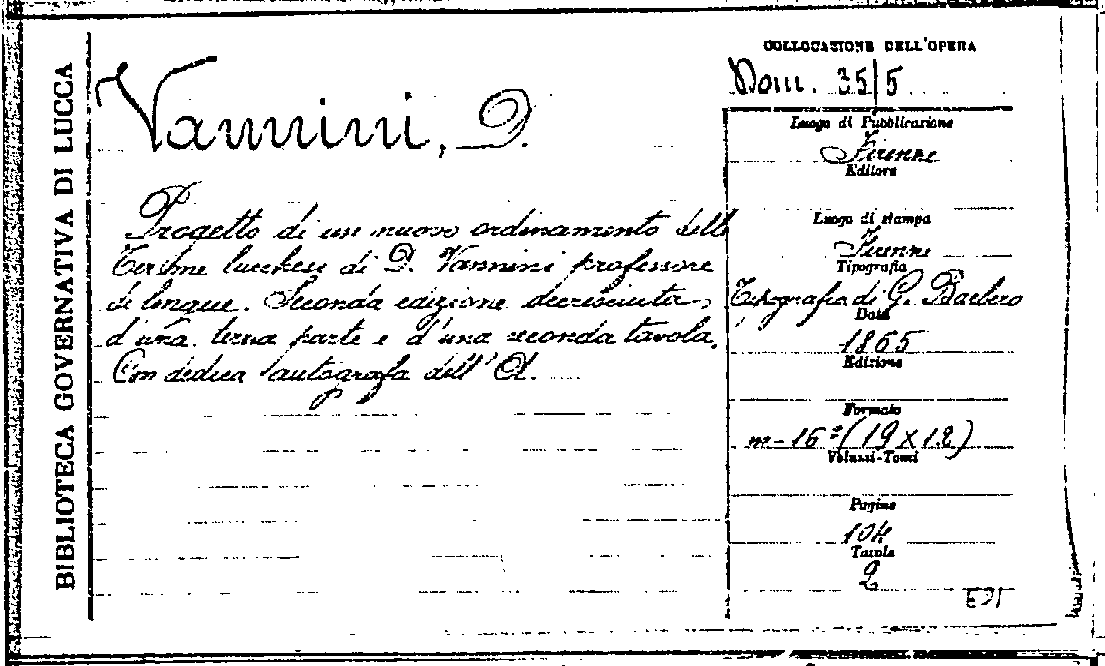 BIBLIOTECA GOVERNATIVA DI LUCCA
Vannini, D.
Progetto di un nuovo ordinamento delle
Terme lucchesi di D. Vannini professore
di lingue. Seconda edizione accresciuta
d'una terza parte e d'una seconda tavola.
Con dedica autografa dell'A.
COLLOCAZIONE DELL'OPERA
Dom. 35/5
Luogo di Pubblicazione
Firenze
Editore
Luogo di stampa
Firenze
Tipografia
Tipografia di G. Barbèro
Data
1865
Edizione
Formato
in-16º (19 x 12)
Volumi-Tomi
Pagine
104
Tavole
2